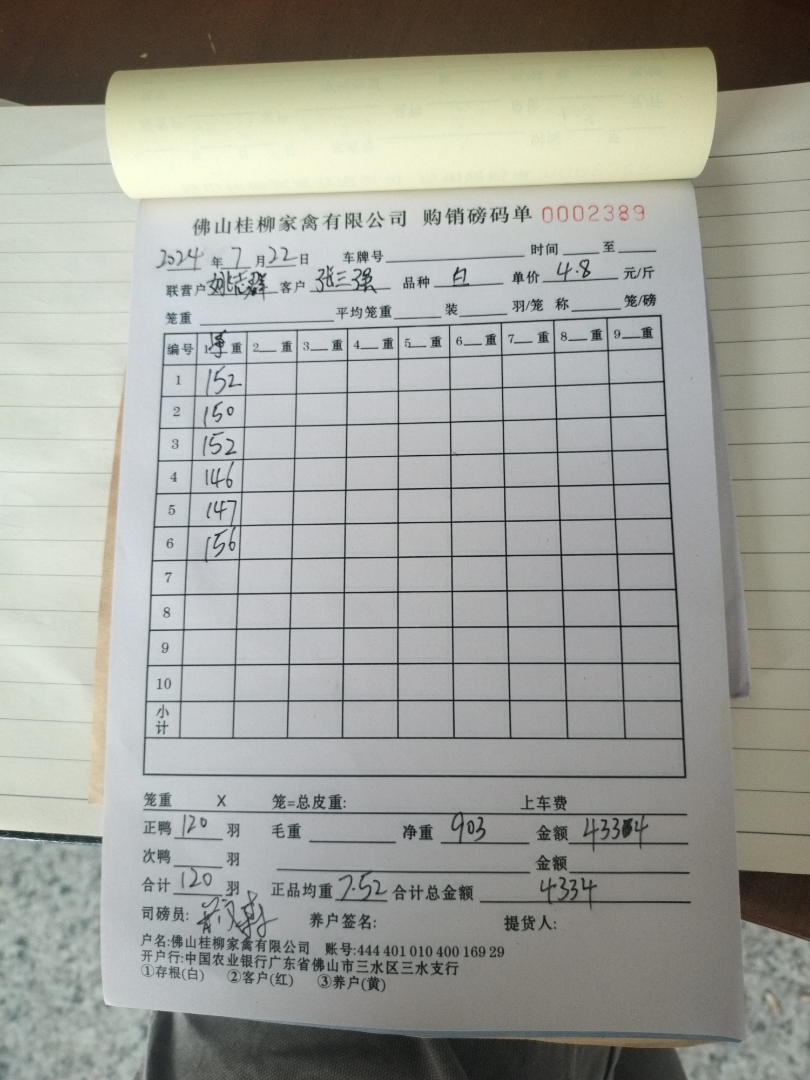 佛山桂柳家禽有限公司 购销磅码单 0002389
2024 年 7 月 22 日 车牌号 时间 至
联营户 姚志群 客户 张三强 品种 白 单价 4.8 元/斤
笼重 平均笼重 装 羽/笼 称 笼/磅
编号 1 净 重 2 重 3 重 4 重 5 重 6 重 7 重 8 重 9 重
1 152
2 150
3 152
4 146
5 147
6 156
7
8
9
10
小计
笼重 X 笼=总皮重: 上车费
正鸭 120 羽 毛重 净重 903 金额 4334
次鸭 羽 金额
合计 120 羽 正品均重 7.52 合计总金额 4334
司磅员: 养户签名: 提货人:
户名:佛山桂柳家禽有限公司 账号:444 401 010 400 169 29
开户行:中国农业银行广东省佛山市三水区三水支行
①存根(白) ②客户(红) ③养户(黄)